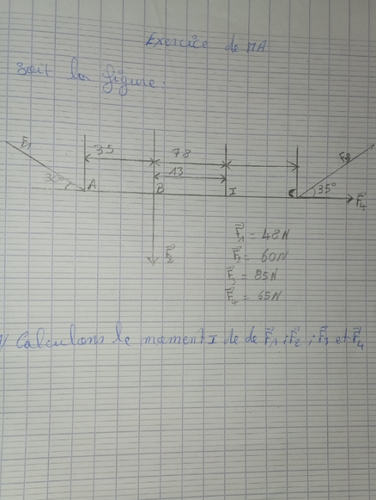 Exercice de MA
soit la figure:
F1 35 78 F3
30° A B 13 I C 35° F4
F2
F1 = 48N
F2 = 60N
F3 = 85N
F4 = 65N
1/ Calculons le moment I de de F1 ; F2 ; F3 et F4